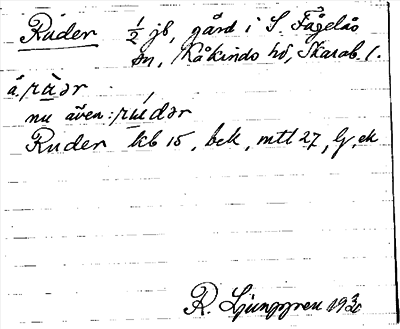 Ruder 1/2 jb, gård i S. Fågelås
sn, Kåkinds hd, Skarab. l.
a, rùər
nu även: rúdər
Ruder kb 15, bek, mtl 27, G. ek
R. Ljunggren 1930